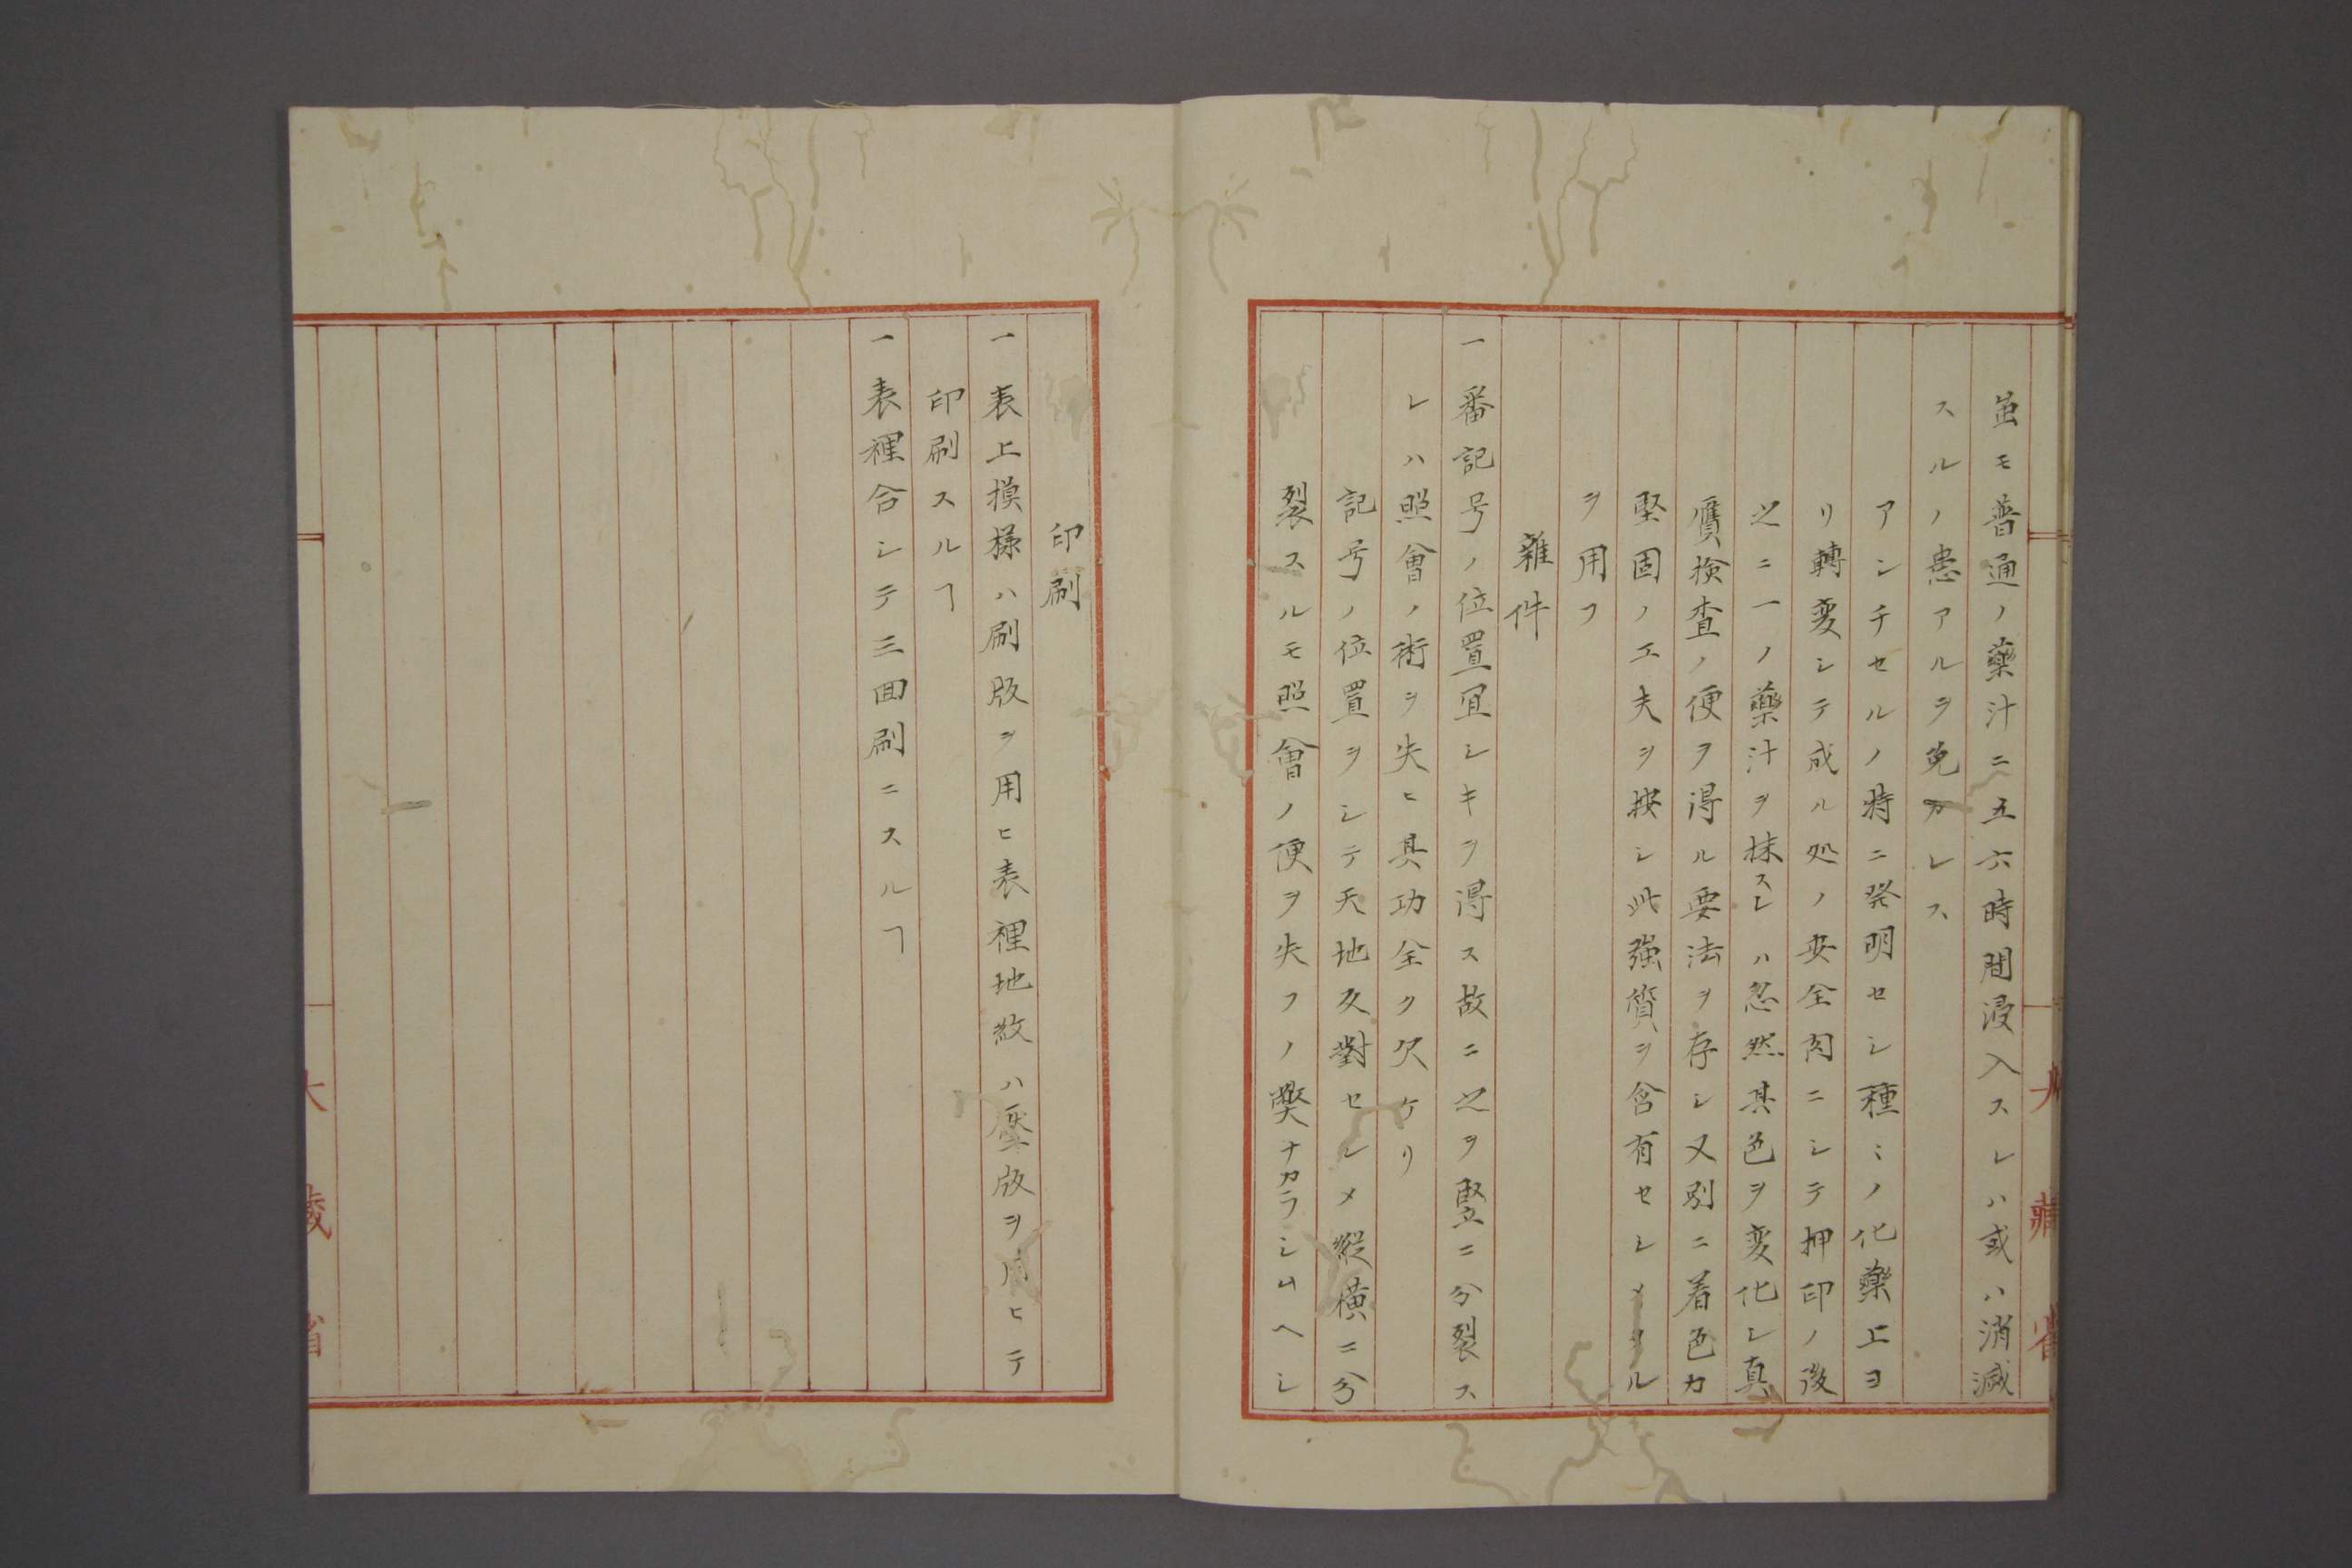 虽モ普通ノ藥汁ニ五六時間浸入スレハ或ハ消滅
スルノ患アルヲ免カレス
アンチセルノ特ニ発明セシ種〻ノ化藥上ヨ
リ轉変シテ成ル処ノ安全肉ニシテ押印ノ後
之ニ一ノ藥汁ヲ抹スレハ忽然其色ヲ変化シ真
贋検査ノ便ヲ得ル要法ヲ存シ又別ニ着色カ
堅固ノ工夫ヲ按シ此強質ヲ含有セシメタル
ヲ用フ
雜件
一番記号ノ位置冝シキヲ得ス故ニ之ヲ竪ニ分裂ス
レハ照會ノ術ヲ失ヒ其功全ク欠ケリ
記号ノ位置ヲシテ天地反對セシメ縦横ニ分
裂スルモ照會ノ便ヲ失フノ獘ナカラシムヘシ
大藏省
印刷
一表上摸様ハ刷版ヲ用ヒ表裡地紋ハ壓版ヲ用ヒテ
印刷スルヿ
一表裡合シテ三回刷ニスルヿ
大藏省